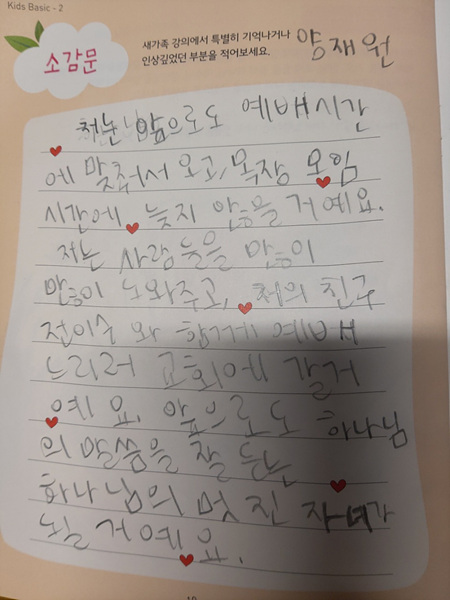 Kids Basic - 2
소감문
새가족 강의에서 특별히 기억나거나
인상깊었던 부분을 적어보세요.
양재원
저는 앞으로도 예배시간
에 맞춰서 오고, 목장 모임
시간에 늦지 안을 거예요.
저는 사람들을 만이
만이 도와주고, 저의 친구
와 함께 예배
드리러 교회에 갈거
예요. 앞으로도 하나님
의 말씀을 잘 듣는
하나님의 멋진 자녀가
될 거예요.